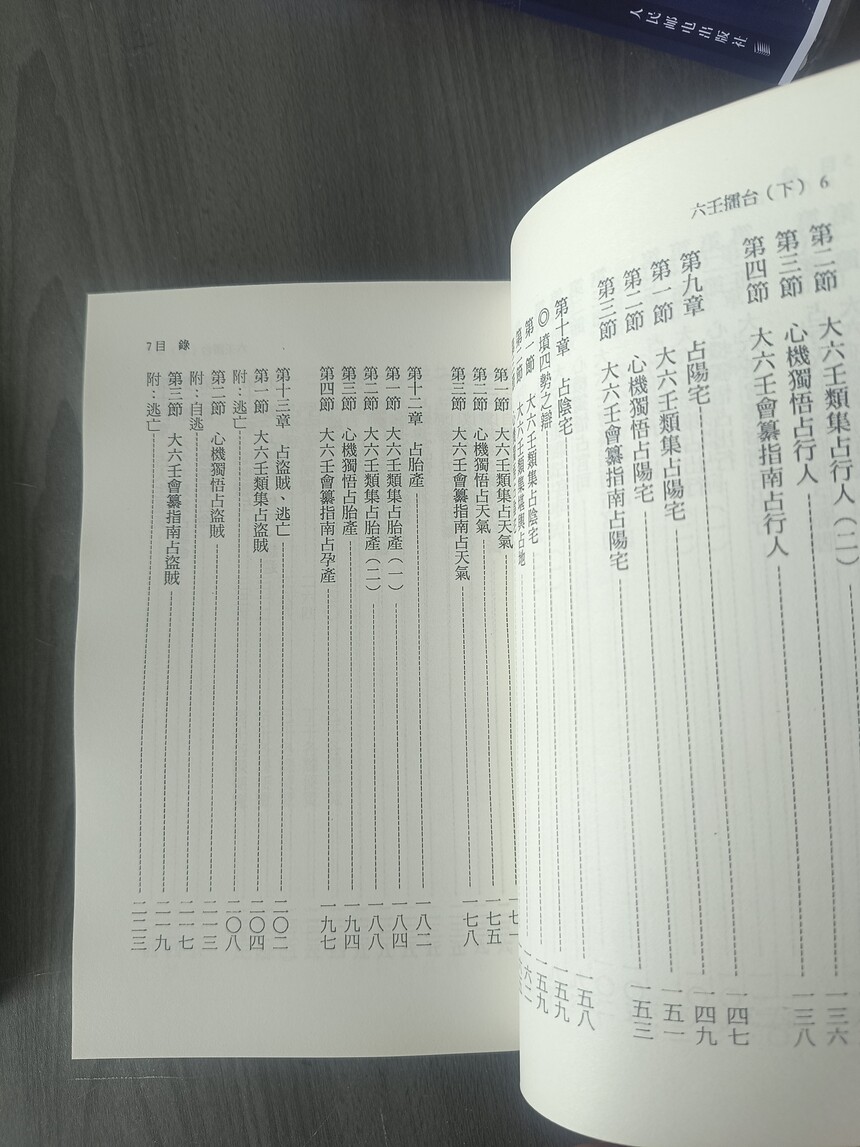 人民邮电出版社
六壬擂台（下）6
第二節　大六壬類集占行人（二）
第三節　心機獨悟占行人 一三六
第四節　大六壬會纂指南占行人 一三八
第九章　占陽宅 一四七
第一節　大六壬類集占陽宅 一四九
第二節　心機獨悟占陽宅 一五一
第三節　大六壬會纂指南占陽宅 一五三
第十章　占陰宅 一五八
◎墳四勢之辯 一五九
第一節　大六壬類集占陰宅 一五九
大六壬類集堪輿占地 一六二
7目　錄
第一節　大六壬類集占天氣
第二節　心機獨悟占天氣 一七五
第三節　大六壬會纂指南占天氣 一七八
第十二章　占胎產 一八二
第一節　大六壬類集占胎產（一） 一八四
第二節　大六壬類集占胎產（二） 一八八
第三節　心機獨悟占胎產 一九四
第四節　大六壬會纂指南占孕產 一九七
第十三章　占盜賊、逃亡 二〇二
第一節　大六壬類集占盜賊 二〇四
附：逃亡 二〇八
第二節　心機獨悟占盜賊 二一三
附：自逃 二一七
第三節　大六壬會纂指南占盜賊 二一九
附：逃亡 二二三